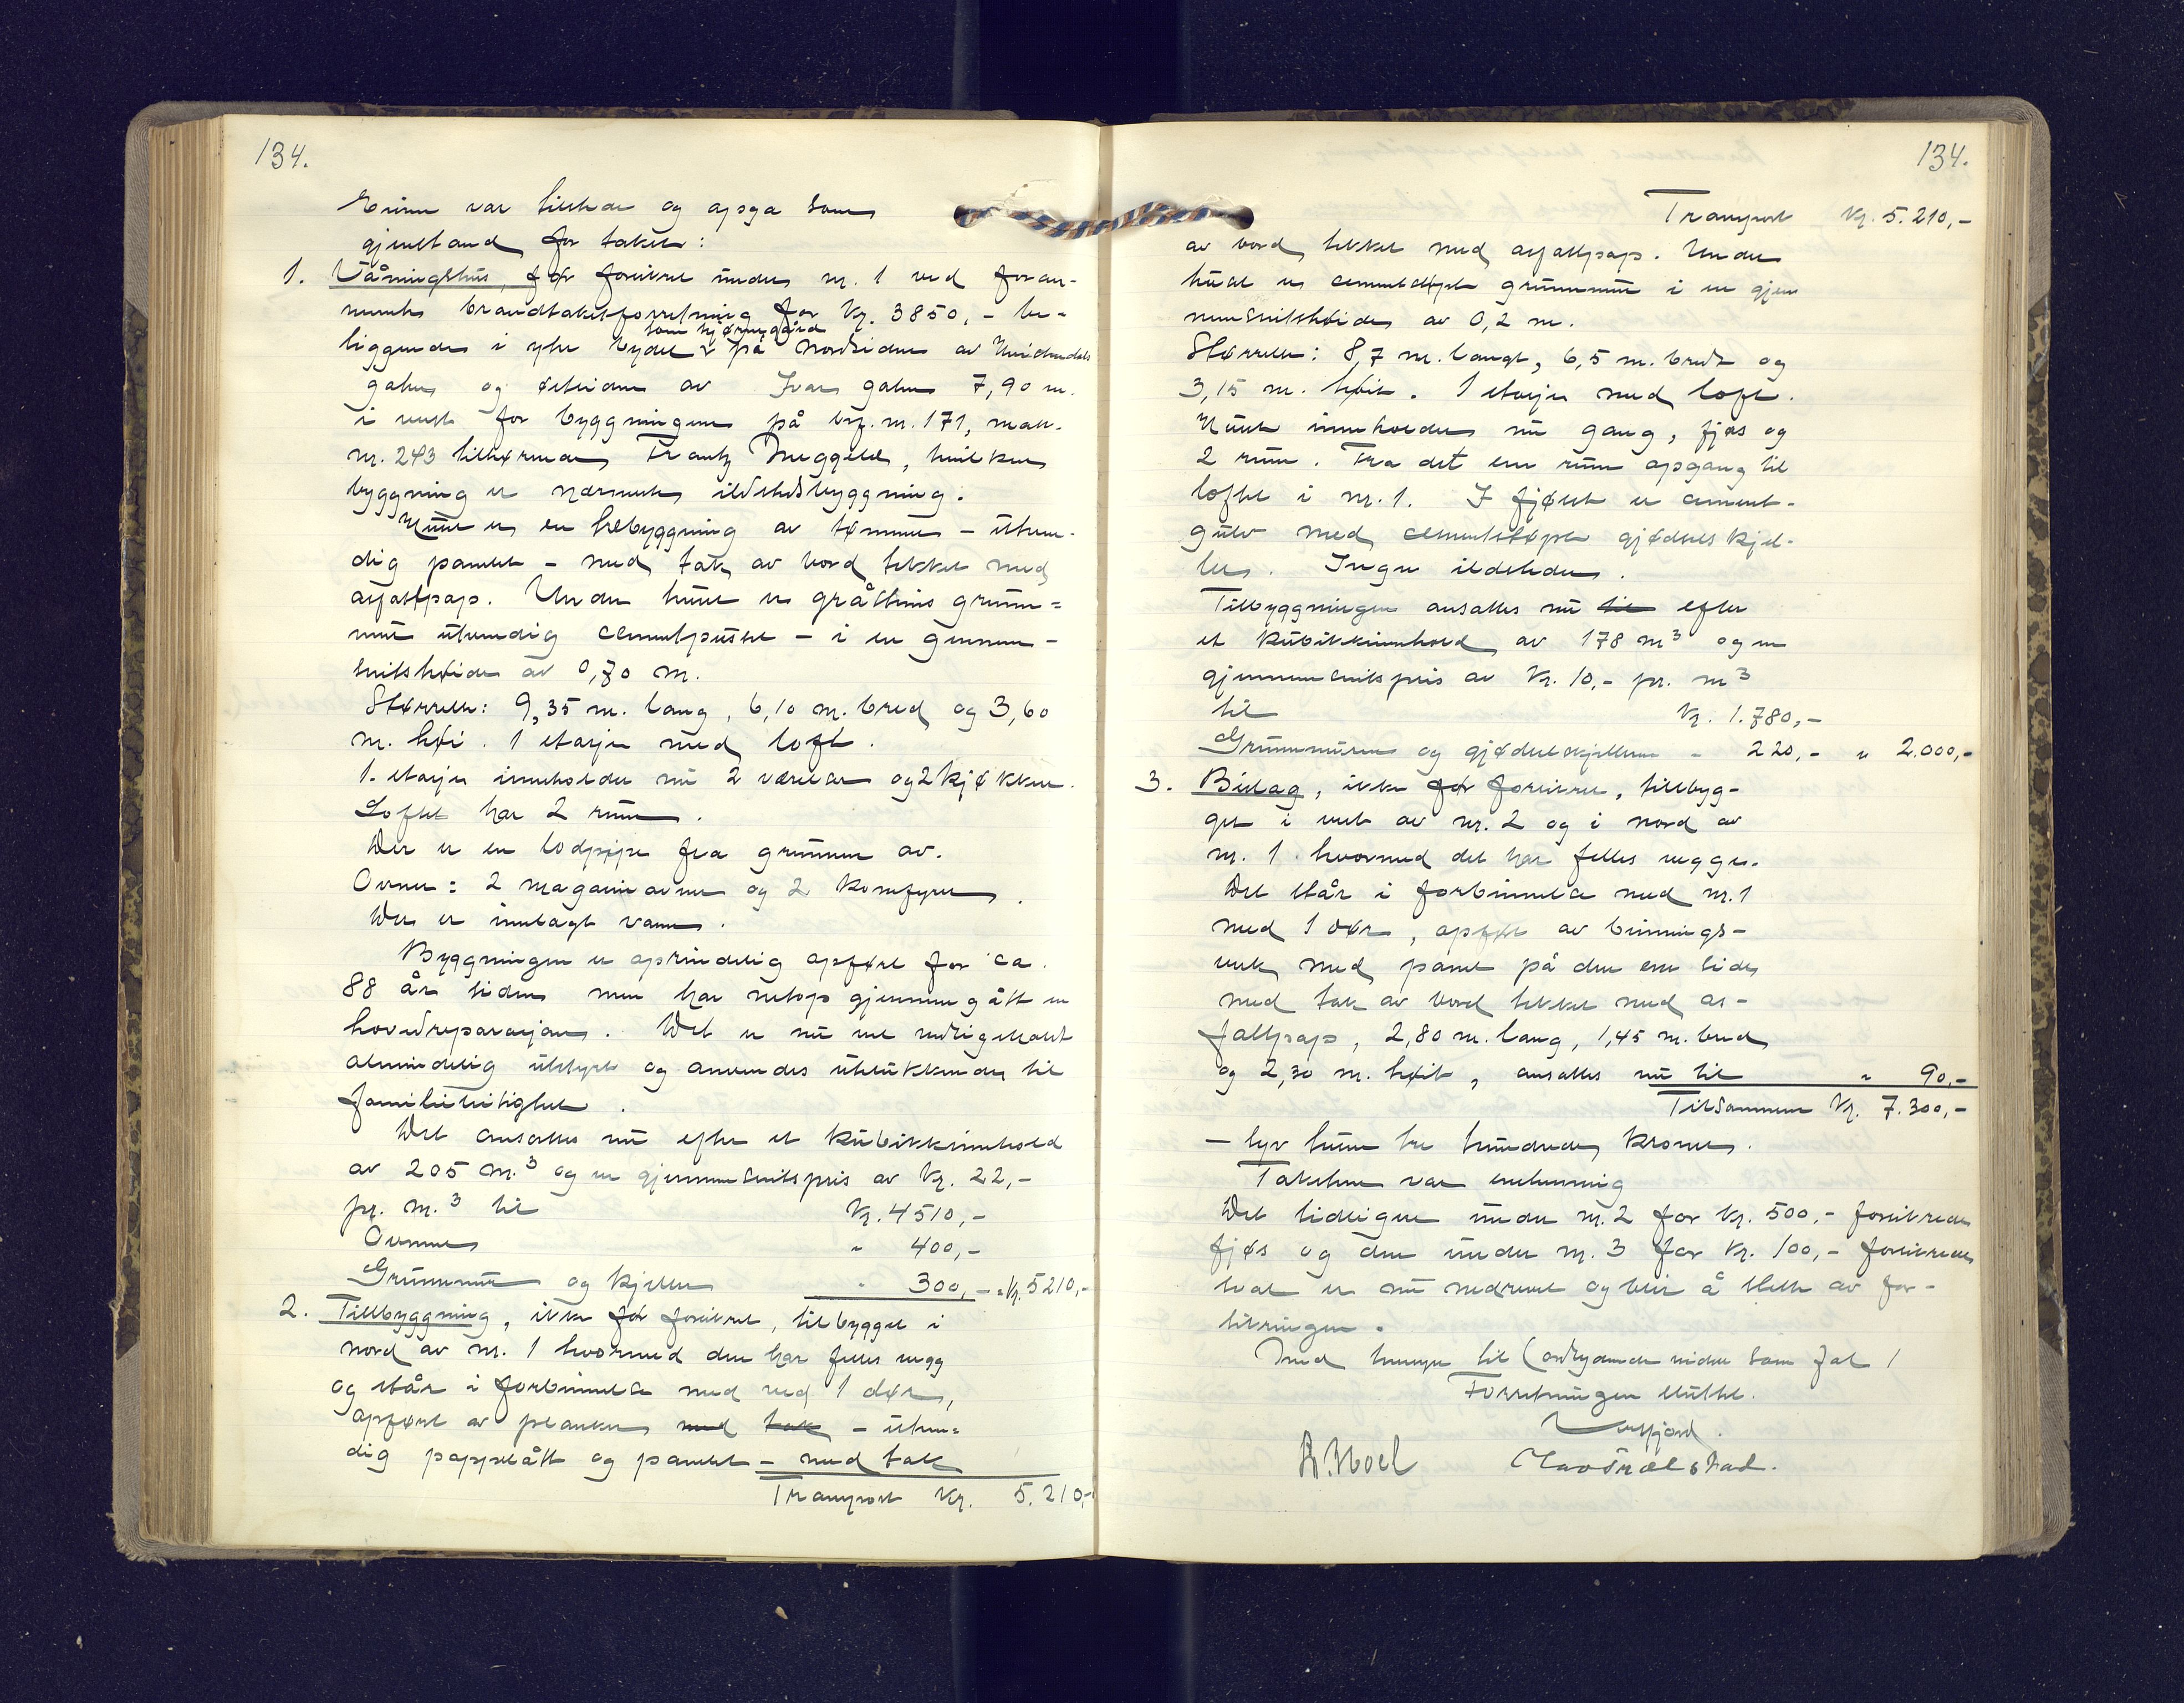 134.
Eieren var tilstede og opga som
gjenstand for taksten:
1. Våningshus, før forsikret under nr. 1 ved foran-
nevnte brandtakstforretning for kr. 3850,- be-
som hjørnegård
liggende i ytre bydel v på nordsiden av
gaten og østsiden av Ivars gaten 7,90 m.
i vest for byggningen på brf. nr. 171, matr.
nr. 243 tilhørende Frantz , hvilken
byggning er nærmeste ildstedsbyggning.
Huset er en helbyggning av tømmer - utven-
dig panelt - med tak av bord tekket med
asfaltpap. Under huset er gråstens grunn=
mur utvendig cementpusset - i en gjennem-
snitshøide av 0,70 m.
Størrelse: 9,35 m. lang, 6,10 m. bred og 3,60
m. høi. 1 etasje med loft.
1. etasje inneholder nu 2 værelser og 2 kjøkken.
Loftet har 2 rum.
Der er en lodpipe fra grunnen av.
Ovner: 2 magasinovner og 2 komfyrer.
Der er innlagt vann.
Byggningen er oprindelig opført for ca.
88 år siden men har netop gjennemgått en
hovedreparasjon. Det er nu vel vedligeholdt
almindelig utstyrt og anvendes utelukkende til
familieleilighet.
Det ansattes nu efter et kubikkinnhold
av 205 m.³ og en gjennemsnitspris av kr. 22,-
pr. m.³ til kr. 4510,-
Ovnene " 400,-
Grunnmur og kjeller " 300,- = kr. 5210,-
2. Tilbyggning, ikke før forsikret, tilbygget i
nord av nr. 1 hvormed den har felles vegg
og står i forbindelse med ved 1 dør,
opført av planker med tak - utven=
dig pappslått og panelt - med tak
Transport kr. 5.210,-
134.
Transport kr. 5.210,-
av bord tekket med asfaltpap. Under
huset er cementstøpt grunnmur i en gjen
nemsnitshøide av 0,2 m.
Størrelse: 8,7 m. langt, 6,5 m. bredt og
3,15 m. høit. 1 etasje med loft.
Huset inneholder nu gang, fjøs og
2 rum. Fra det ene rum opgang til
loftet i nr. 1. I fjøset er cement-
gulv med cementstøpt gjødselskjel-
ler. Ingen ildsteder.
Tilbyggningen ansattes nu til efter
et kubikkinnhold av 178 m³ og en
gjennemsnitspris av kr. 10,- pr. m³
til kr. 1.780,-
Grunnmuren og gjødselskjelleren " 220,- " 2.000,-
3. Bislag, ikke før forsikret, tilbyg-
get i vest av nr. 2 og i nord av
nr. 1 hvormed det har felles vegger.
Det står i forbindelse med nr. 1
med 1 dør, opført av binnings-
verk med panel på den ene side
med tak av bord tekket med as-
faltpap, 2,80 m. lang, 1,45 m. bred
og 2,30 m. høit, ansattes nu til " 90,-
Tilsammen kr. 7.300,-
- syv tusen tre hundrede kroner.
Taksten var enstemmig
Det tidligere under nr. 2 for kr. 500,- forsikrede
fjøs og den under nr. 3 for kr. 100,- forsikrede
sval er nu nedrevet og blir å slette av for-
sikringen.
Med hensyn til brandfarlighet
Forretningen sluttet.